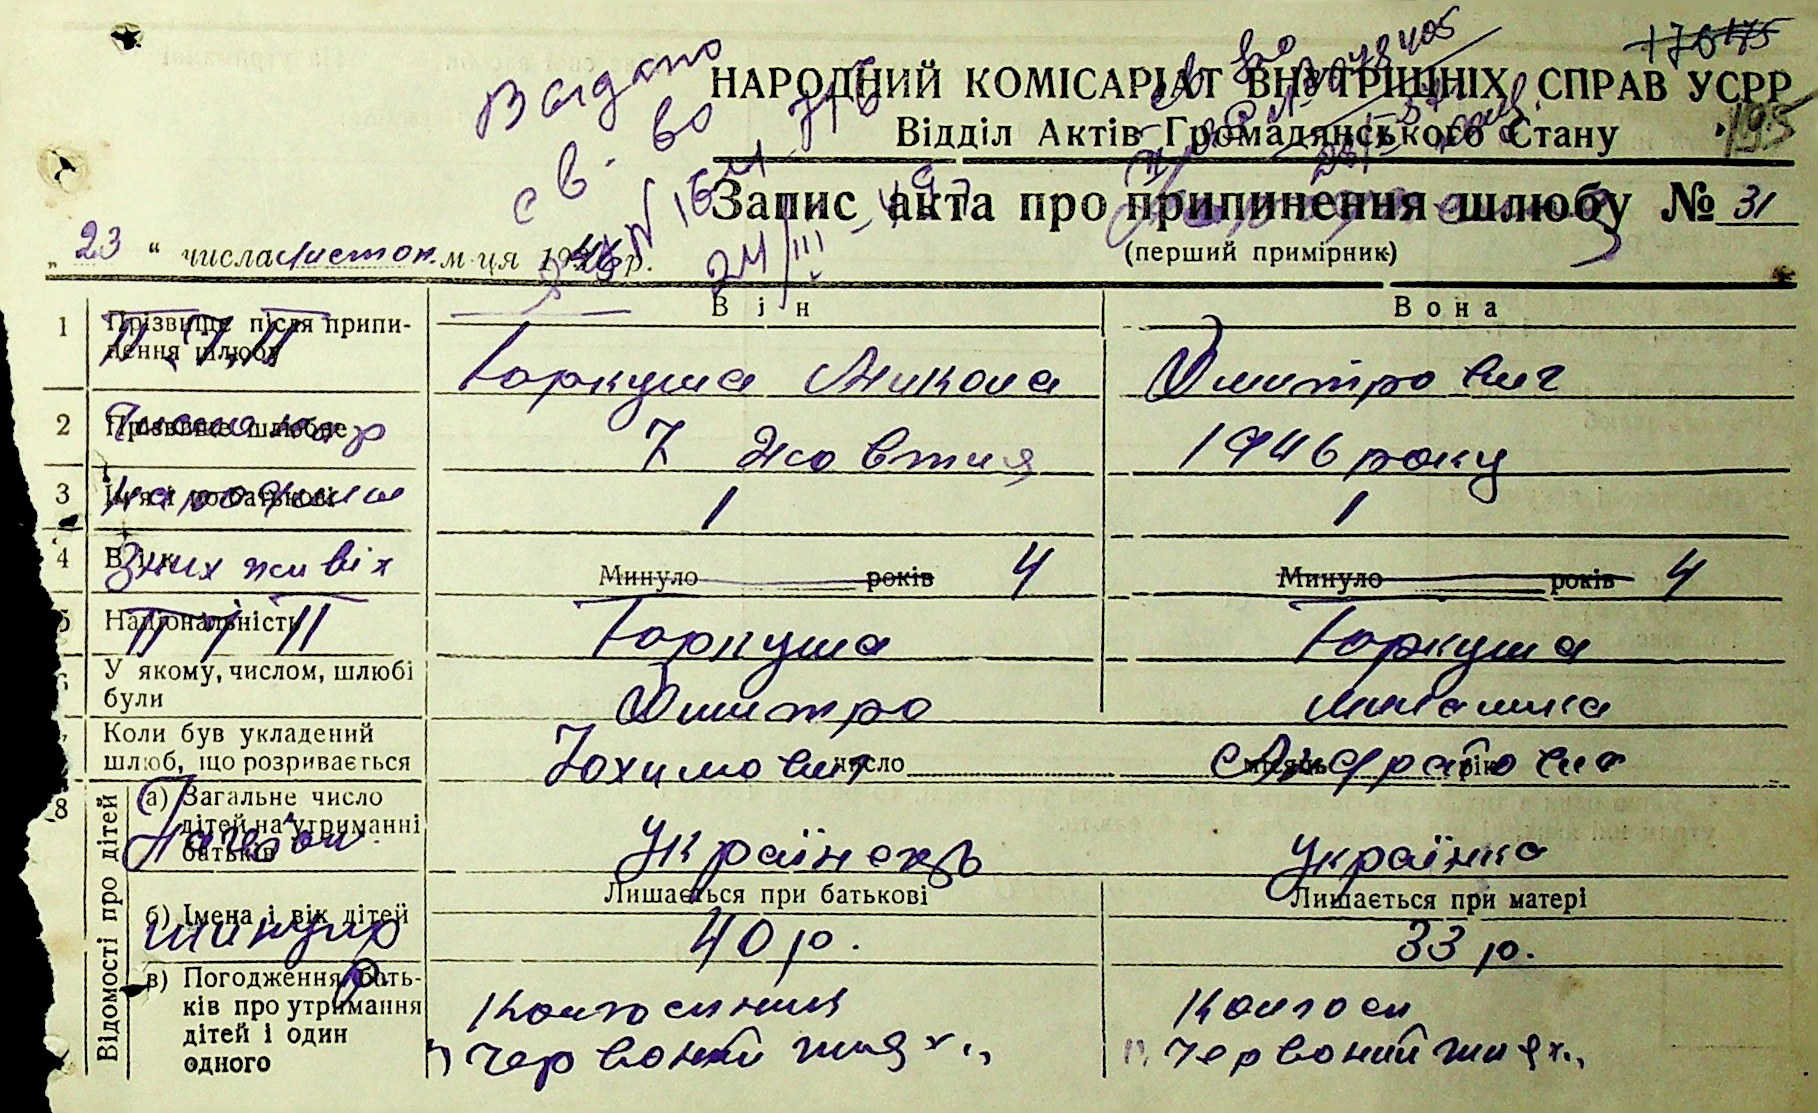 176 175
195
Видано
св. во
НАРОДНИЙ КОМІСАРІАТ ВНУТРІШНІХ СПРАВ УСРР
Відділ Актів Громадянського Стану
Запис акта про припинення шлюбу № 31
(перший примірник)
„ 23 “ числа листоп. м-ця 1946 р.
24/III
Він Вона
1 Прізвище після припинення шлюбу
П. І. П
Горкуша Микола Дмитрович
2 Прізвище шлюбне
7 Жовтня 1946 року
3 Ім'я і по батькові
народжен
1 1
4 Вік
З них живіх
Минуло років 4 Минуло років 4
5 Національність
П І П
Горкуша Горкуша
6 У якому, числом, шлюбі були
Дмитро
7 Коли був укладений шлюб, що розривається
Юхимович число місяць рік
8 Відомості про дітей
а) Загальне число дітей на утриманні батьків
Українець Українка
Лишається при батькові Лишається при матері
б) Імена і вік дітей
минуло
40 р. 33 р.
в) Погодження батьків про утримання дітей і один одного
Колгоспник Колгосп
"Червоний шлях" "Червоний шлях"